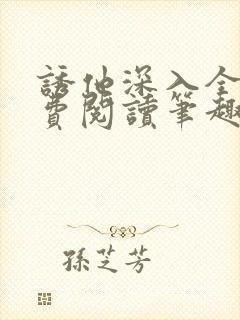 誘他深入全
費閱讀筆趣
孫芝芳